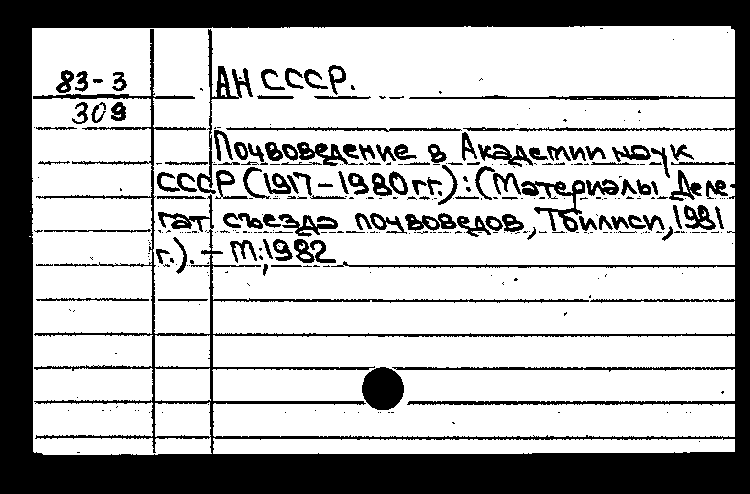 83-3
309
АН СССР.
Почвоведение в Академии наук
СССР (1917-1980 гг.): (Материалы Деле-
гат. съезда почвоведов, Тбилиси, 1981
г.). - М., 1982.